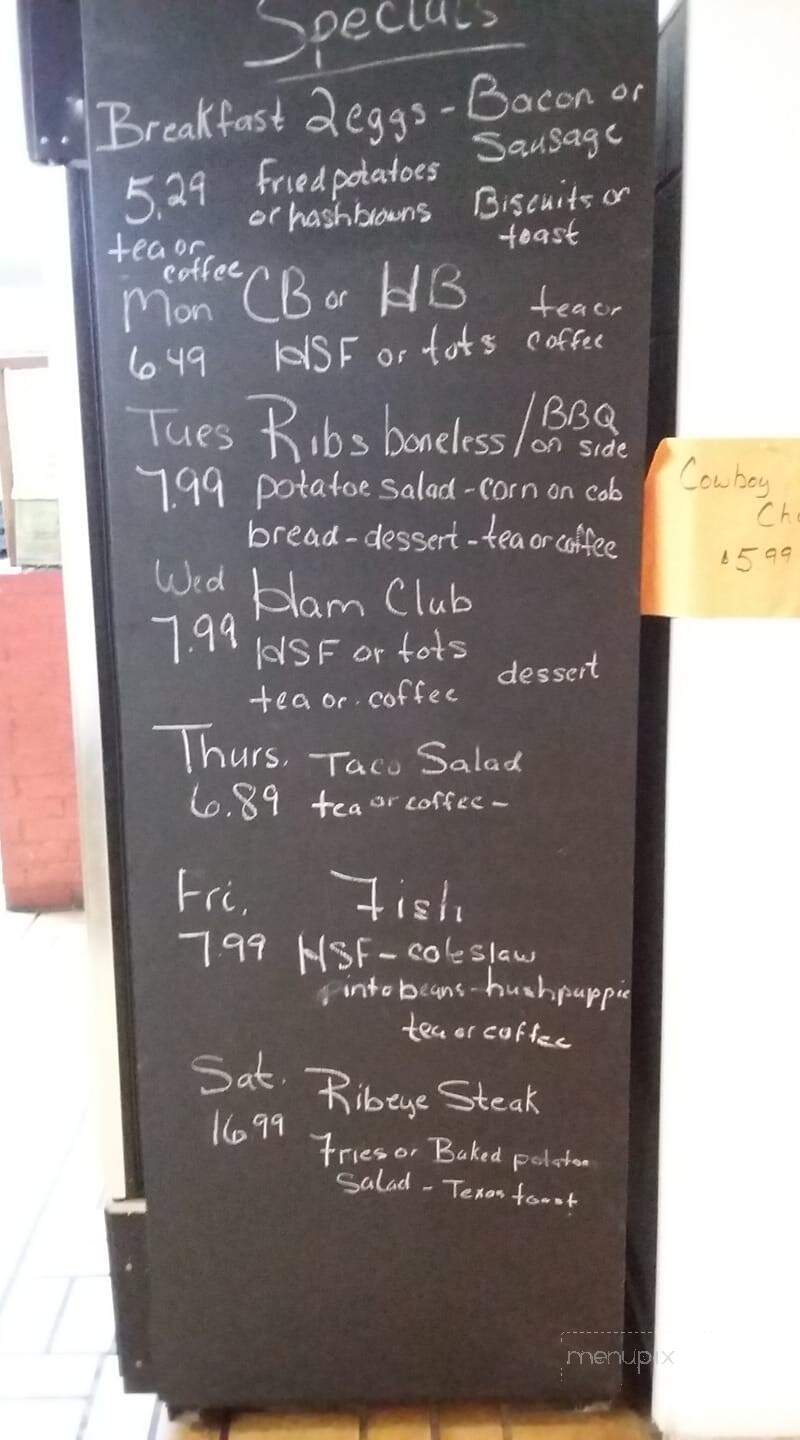 Specials
Breakfast 2eggs - Bacon or
Sausage
5.29 fried potatoes Biscuits or
or hashbrowns toast
tea or
coffee
Mon CB or HB tea or
6.49 HSF or tots coffee
Tues Ribs boneless / BBQ
on side
7.99 potatoe salad - corn on cob
bread - dessert - tea or coffee
Wed Ham Club
7.99 HSF or tots dessert
tea or coffee
Thurs. Taco Salad
6.89 tea or coffee -
Fri. Fish
7.99 HSF - coleslaw
pinto beans - hushpuppie
tea or coffee
Sat. Ribeye Steak
16.99
Fries or Baked potatoe
Salad - Texas toast
Cowboy
$5.99
menupix